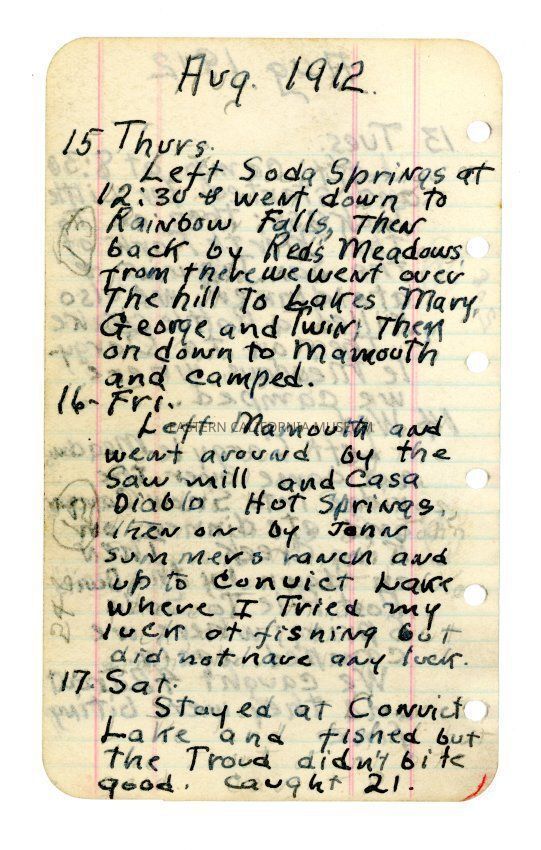 Aug. 1912.
15. Thurs.
Left Soda Springs at
12:30 & went down to
Rainbow Falls, Then
back by Reds Meadows,
from there we went over
The hill To Lakes Mary,
George and Twin; Then
on down to Mamouth
and camped.
16- Fri.
Left Mamouth and
EASTERN CALIFORNIA MUSEUM
went around by the
Saw mill and Casa
Diablo Hot Springs,
Then on by John
Summers ranch and
up to Convict Lake
where I Tried my
luck at fishing but
did not have any luck.
17. Sat.
Stayed at Convict
Lake and fished but
the Troud didn't bite
good. Caught 21.